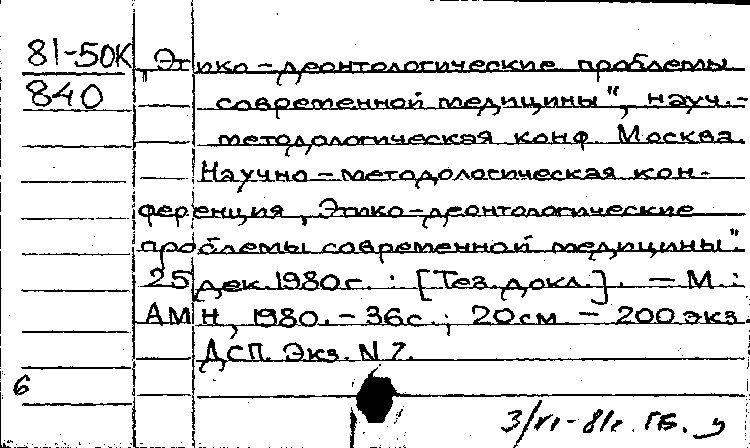 81-50К „Этико-деонтологические проблемы
840 современной медицины", науч.-
методологическая конф. Москва.
Научно-методологическая кон-
ференция „Этико-деонтологические
проблемы современной медицины".
25 дек. 1980г. : [Тез. докл.]. — М. :
АМН, 1980. - 36с. ; 20см — 200 экз.
ДСП. Экз. N 7.
6
3/VI-81г. ГБ.